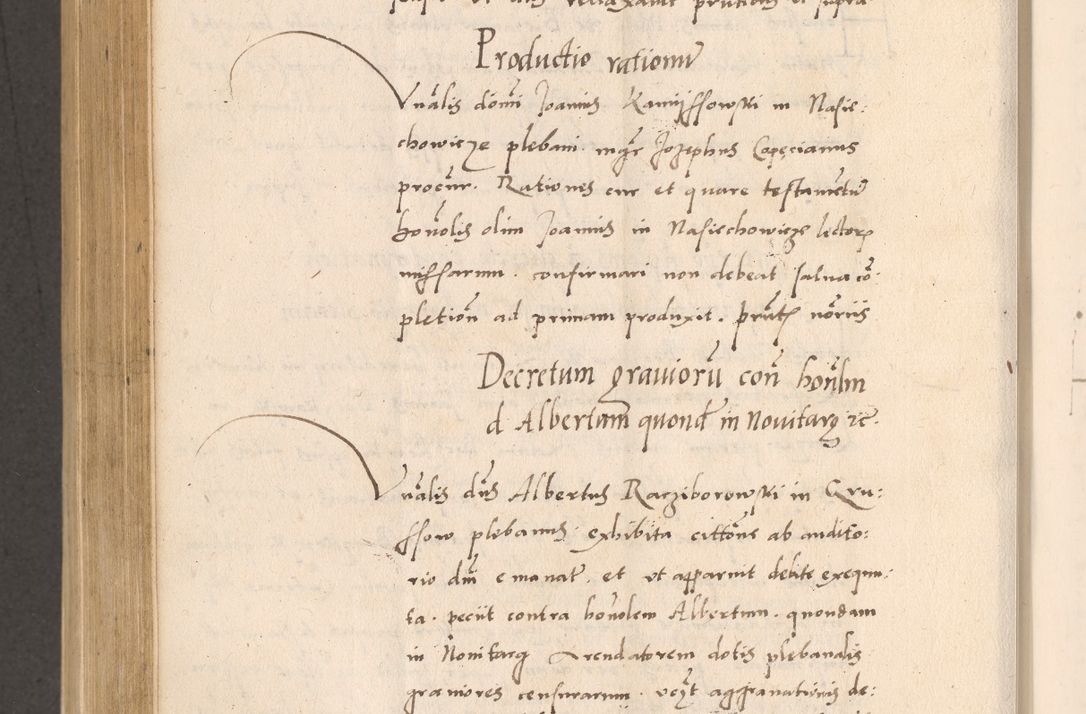 Productio rationũ
Vnãlis dõmi Joannis Kamyſſowſki in Naſie:
chowicze plebani. mgr̃ Jozephus Copęcianus
procur̃. Rationes cur et quare teſtamẽtũ
honõlis olim Joannis in Naſiechowicze lectorꝭ
miſſarum. confirmari non debeat ſalua cõ:
pletioñ ad primam produxit. pr̃ntꝭ noriis
Decretum grauiorũ coñ honõlm
d Albertum quond̃ in Nouitarg ꝛc̃.
Vnãlis dñs Albertus Racziborowſki in Qru:
ſſow plebanus. exhibita cittõne ab audito:
rio dñi emanat̃. et vt apparuit debite exequu:
ta. peciit contra honõlem Albertum. quondam
in Nouitarg Arendatorem dotis plebanalis
grauiores cenſurarum. vcꝫt aggrauationis de: